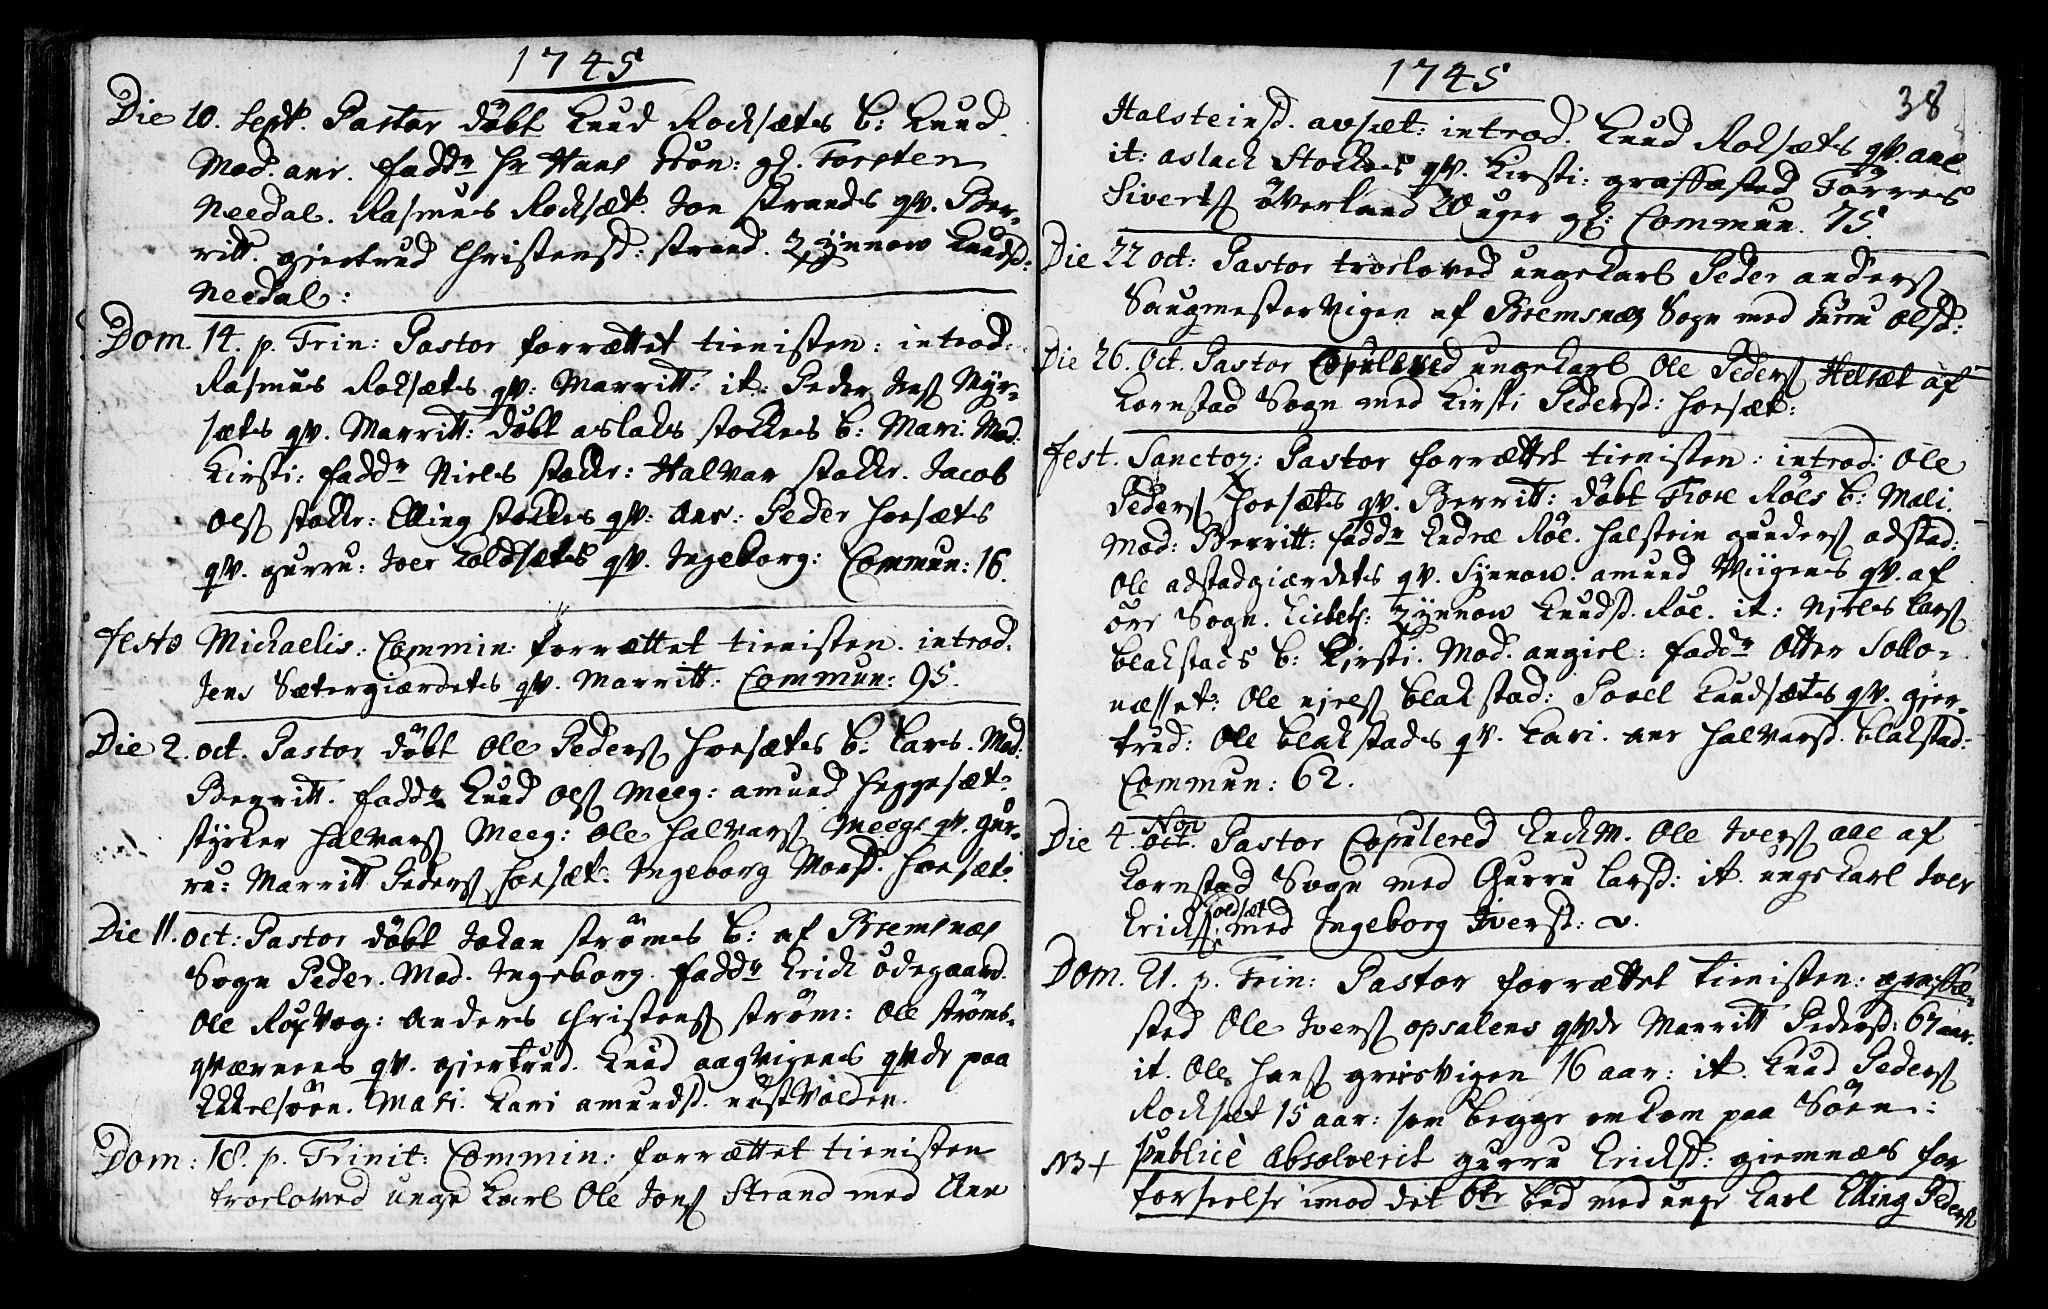 1745
Die 10. Sept. Pastor döbt Knud Rocksæts b: Knud.
Mod. anr. fadd Hr Hans Thon: gl. Torsten
Needal. Rasmus Rocksæt. Jon Strands qv. Ber-
ritt. gjertrud Christensd: strand. Zÿnnow Knudsd:
Needal:
Dom. 14. p. Trin: Pastor forrættet tienisten: introd:
Rasmus Roksæts qv: Marritt: it: Peder Jens Myr-
sæts qv. Marritt: döbt aslaks stokkes b: Mari. Mod:
Kirsti: fadd Niels stokk: Halvar stokk. Jacob
Ols stokk: Elling stokkes qv: anr: Peder Hoesæts
qv. gurru: Iver Koldsæts qv. Ingeborg: Commun: 16.
festo Michaelis: Commin: forrættet tienisten. introd.
Jens Sætergiærdets qv. Marritt: Commun: 95.
Die 2. oct. Pastor döbt Ole Peders Hoesæts b: Lars. Mod:
Berritt. fadd Knud Ols Meeg: amund Heggesæt:
styrker Halvars Meeg: Ole Halvars Meegs qv. gur-
ru: Marritt Peders Hoesæt: Ingeborg Morsd. Hoesæt:
Die 11. oct: Pastor döbt Johan ströms b: af Bremsnæs
Sogn Peder. Mod. Ingeborg. fadd Erick ödegaard.
Ole Røxvog: Anders Christens ström: Ole ströms-
qværnens qv. gjertrud. Knud aagvigens qvde paa
Ekkelsöen. Mari. Kari amundsd. nustvolden.
Dom: 18. p. Trinit: Commin: forrættet tienisten
troeloved unge Karl Ole Jons Strand med Ane
1745
38
Halsteinsd. avsæt: introd. Knud Roksæts qv. ane
it: aslack Stockes qv. Kirsti: graffæsted Törres
Siverts överland 20 uger gl: Commun. 75.
Die 22 oct: Pastor troeloved ungekarl Peder anders
Saugmestervigen af Bremsnæs Sogn med Gurru olsd:
Die 26. Oct. Pastor Copulered ungekarl Ole Peders Helsæt af
Kornstad Sogn med Kirsti Pedersd: Hoesæt:
fest. Sanctor: Pastor forrættet tienisten: introd: Ole
Peders Hoesæts qv. Berritt: döbt Tore Röes b: Mali.
Mod: Berritt: fadd Endre Röe. Halstein gunders adstad:
Ole adstadgiærdets qv. Synnow. amund Viigens qv. af
öre Sogn. Lisbet: Zÿnnow Knudsd. Röe. it: Njels Lars
blakstads b: Kirsti. Mod. angiel: fadd Otter Sollo-
næsset: Ole njels blakstad: Poell Knudsæts qv. gjer-
trud: Ole blakstads qv. Kari. anr Halvarsd. blakstad:
Commun: 62.
Die 4. oct. Nov Pastor Copulered Enckm. Ole Ivers aae af
Kornstad Sogn med Gurru Larsd: it. ungekarl Iver
Ericks Koldsæt med Ingeborg Iversd:
Dom. 21. p. Trin: Pastor forrættet tienisten: graffæ-
sted Ole Ivers opsalens qvde Marritt Pedersd: 67 aar.
it. Ole Hans greisvigen 16 aar: it. Knud Peders
Rocksæt 15 aar: som begge omkom paa Söen:
NB + publicè absolverit gurru Ericksd: giemnæs for
forseelse imod det 6te bud med unge Karl Elling Peders